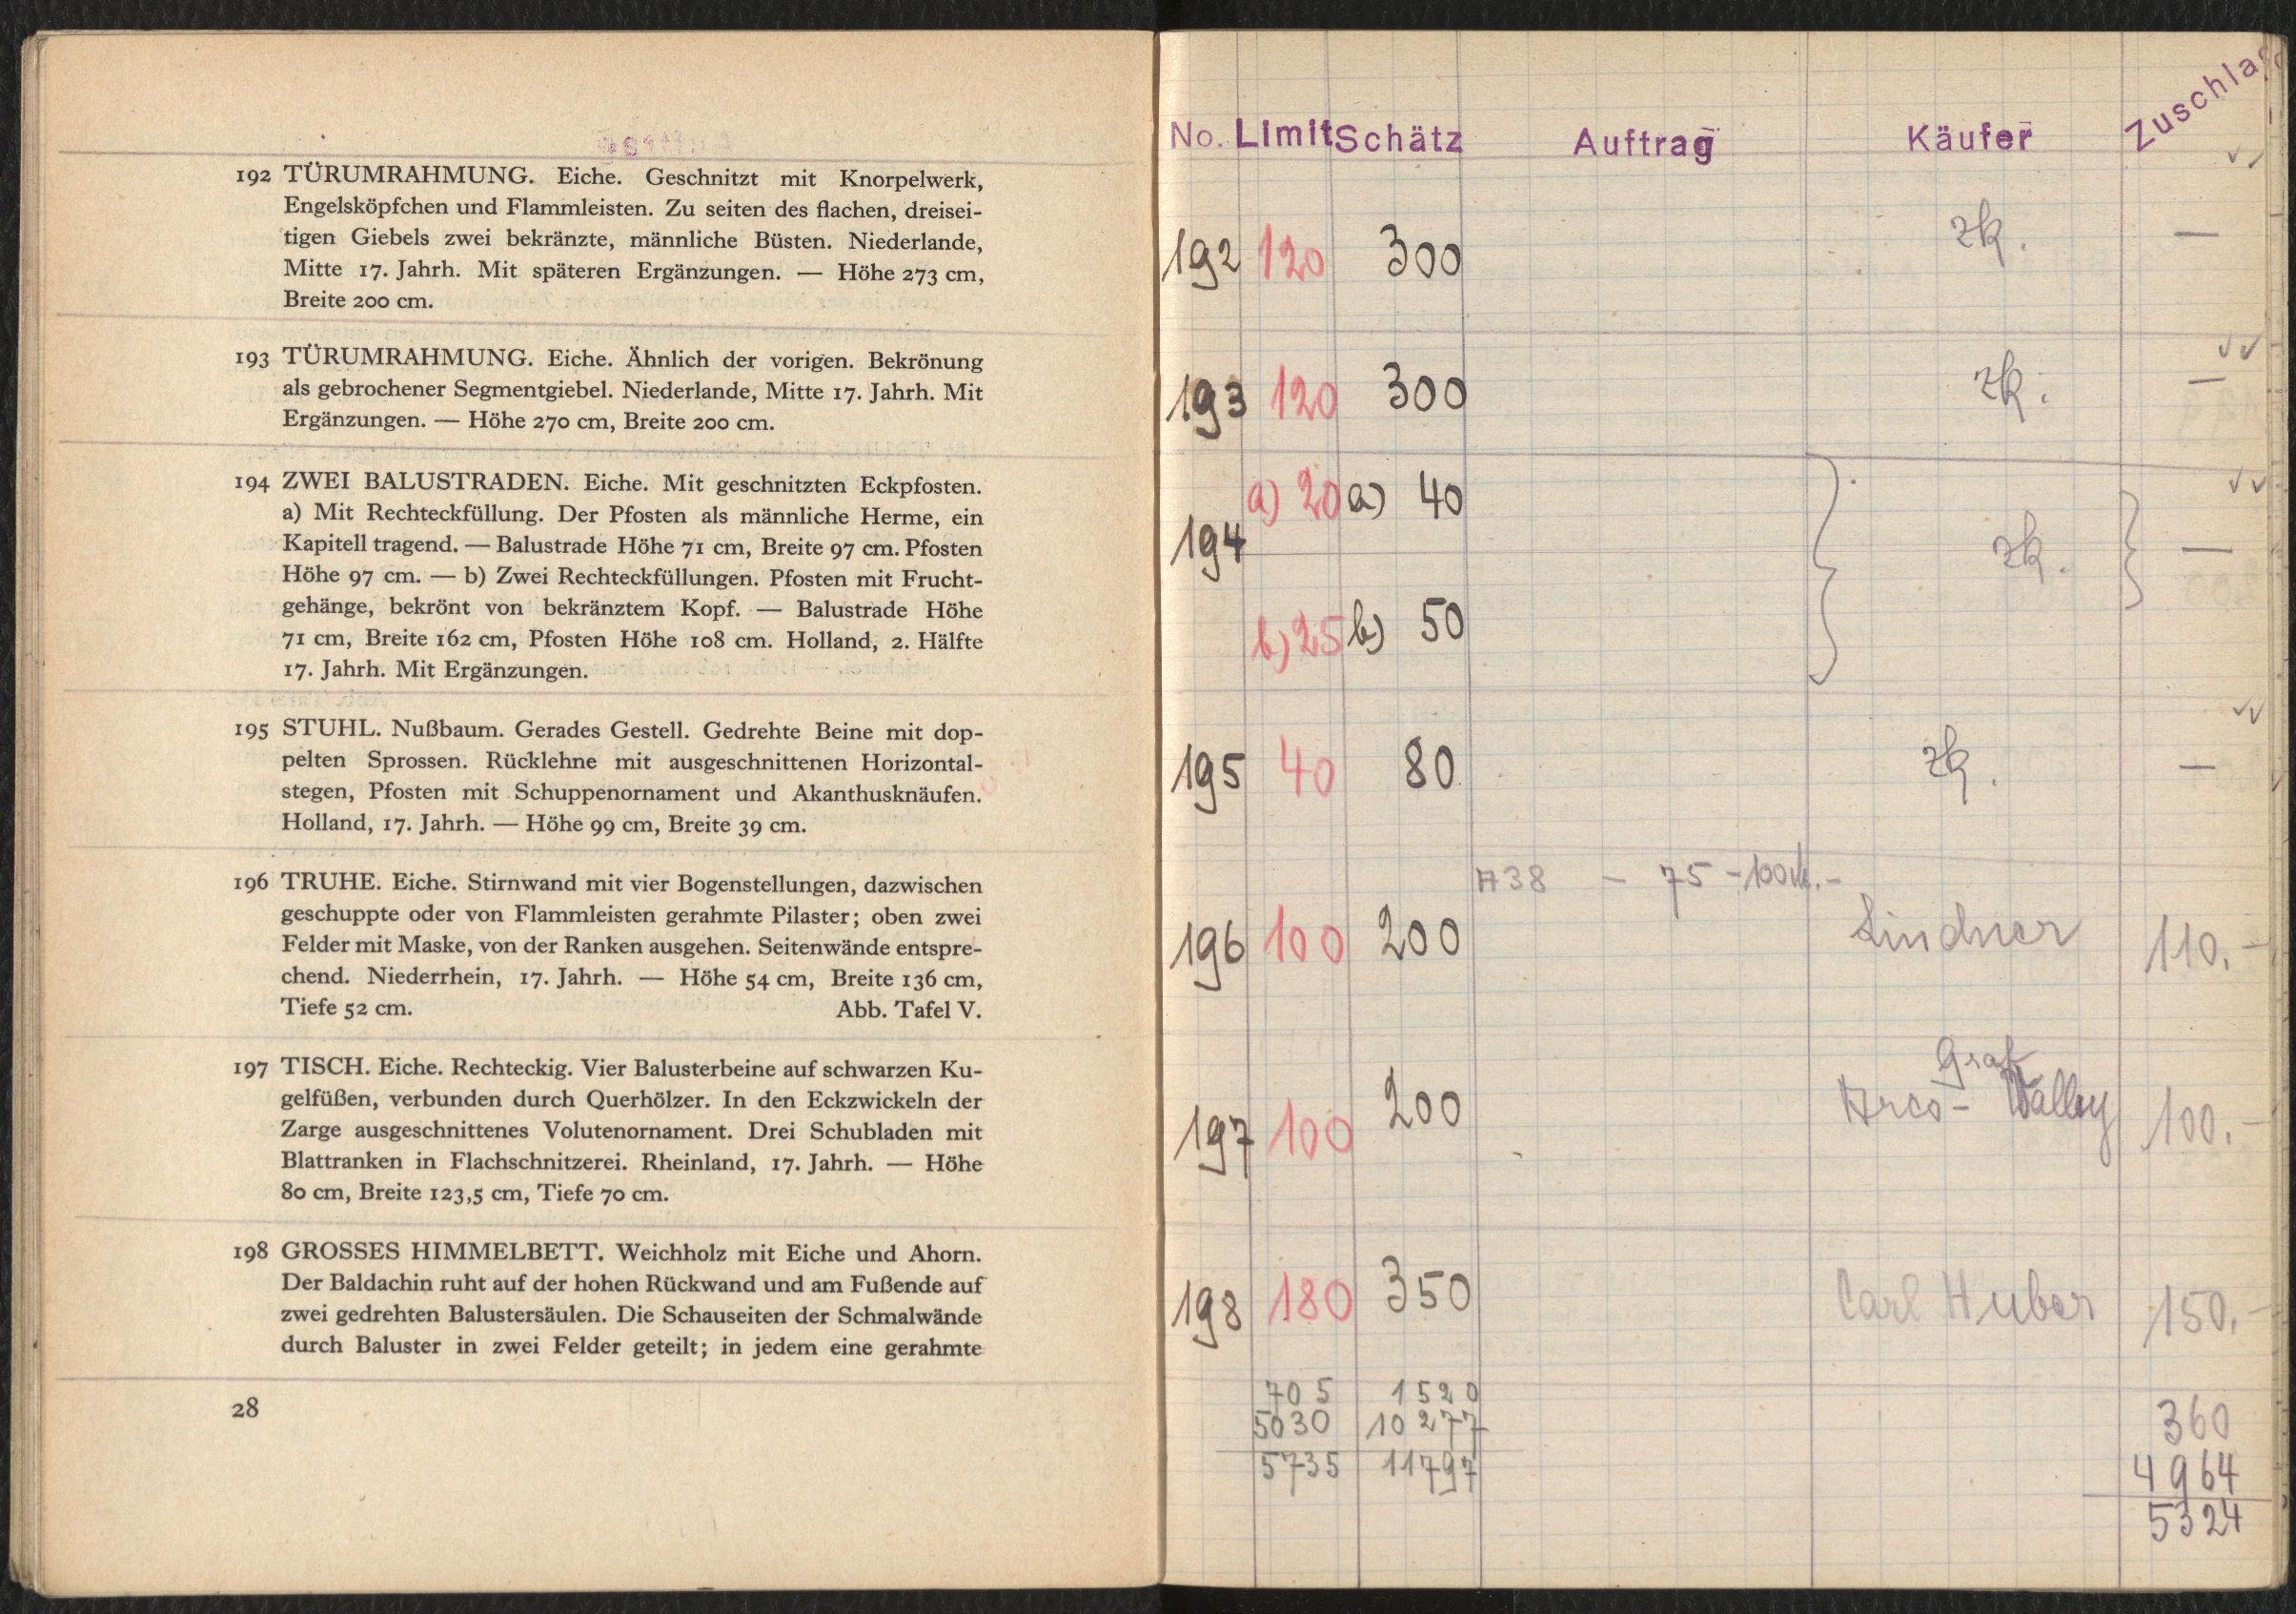 192 TÜRUMRAHMUNG. Eiche. Geschnitzt mit Knorpelwerk,
Engelsköpfchen und Flammleisten. Zu seiten des flachen, dreisei-
tigen Giebels zwei bekränzte, männliche Büsten. Niederlande,
Mitte 17. Jahrh. Mit späteren Ergänzungen. — Höhe 273 cm,
Breite 200 cm.
193 TÜRUMRAHMUNG. Eiche. Ähnlich der vorigen. Bekrönung
als gebrochener Segmentgiebel. Niederlande, Mitte 17. Jahrh. Mit
Ergänzungen. — Höhe 270 cm, Breite 200 cm.
194 ZWEI BALUSTRADEN. Eiche. Mit geschnitzten Eckpfosten.
a) Mit Rechteckfüllung. Der Pfosten als männliche Herme, ein
Kapitell tragend. — Balustrade Höhe 71 cm, Breite 97 cm. Pfosten
Höhe 97 cm. — b) Zwei Rechteckfüllungen. Pfosten mit Frucht-
gehänge, bekrönt von bekränztem Kopf. — Balustrade Höhe
71 cm, Breite 162 cm, Pfosten Höhe 108 cm. Holland, 2. Hälfte
17. Jahrh. Mit Ergänzungen.
195 STUHL. Nußbaum. Gerades Gestell. Gedrehte Beine mit dop-
pelten Sprossen. Rücklehne mit ausgeschnittenen Horizontal-
stegen, Pfosten mit Schuppenornament und Akanthusknäufen.
Holland, 17. Jahrh. — Höhe 99 cm, Breite 39 cm.
196 TRUHE. Eiche. Stirnwand mit vier Bogenstellungen, dazwischen
geschuppte oder von Flammleisten gerahmte Pilaster; oben zwei
Felder mit Maske, von der Ranken ausgehen. Seitenwände entspre-
chend. Niederrhein, 17. Jahrh. — Höhe 54 cm, Breite 136 cm,
Tiefe 52 cm. Abb. Tafel V.
197 TISCH. Eiche. Rechteckig. Vier Balusterbeine auf schwarzen Ku-
gelfüßen, verbunden durch Querhölzer. In den Eckzwickeln der
Zarge ausgeschnittenes Volutenornament. Drei Schubladen mit
Blattranken in Flachschnitzerei. Rheinland, 17. Jahrh. — Höhe
80 cm, Breite 123,5 cm, Tiefe 70 cm.
198 GROSSES HIMMELBETT. Weichholz mit Eiche und Ahorn.
Der Baldachin ruht auf der hohen Rückwand und am Fußende auf
zwei gedrehten Balustersäulen. Die Schauseiten der Schmalwände
durch Baluster in zwei Felder geteilt; in jedem eine gerahmte
28
No. Limit Schätz Auftrag Käufer Zuschlag
192 120 300 zk. —
193 120 300 zk. —
a) 20 a) 40
194 zk. —
b) 25 b) 50
195 40 80 zk. —
38 – 75 – 100
196 100 200 Lindner 110.–
Graf
197 100 200 Arco-Valley 100.–
198 180 350 Carl Huber 150.–
705 1520 360
5030 10277 4964
5735 11797 5324